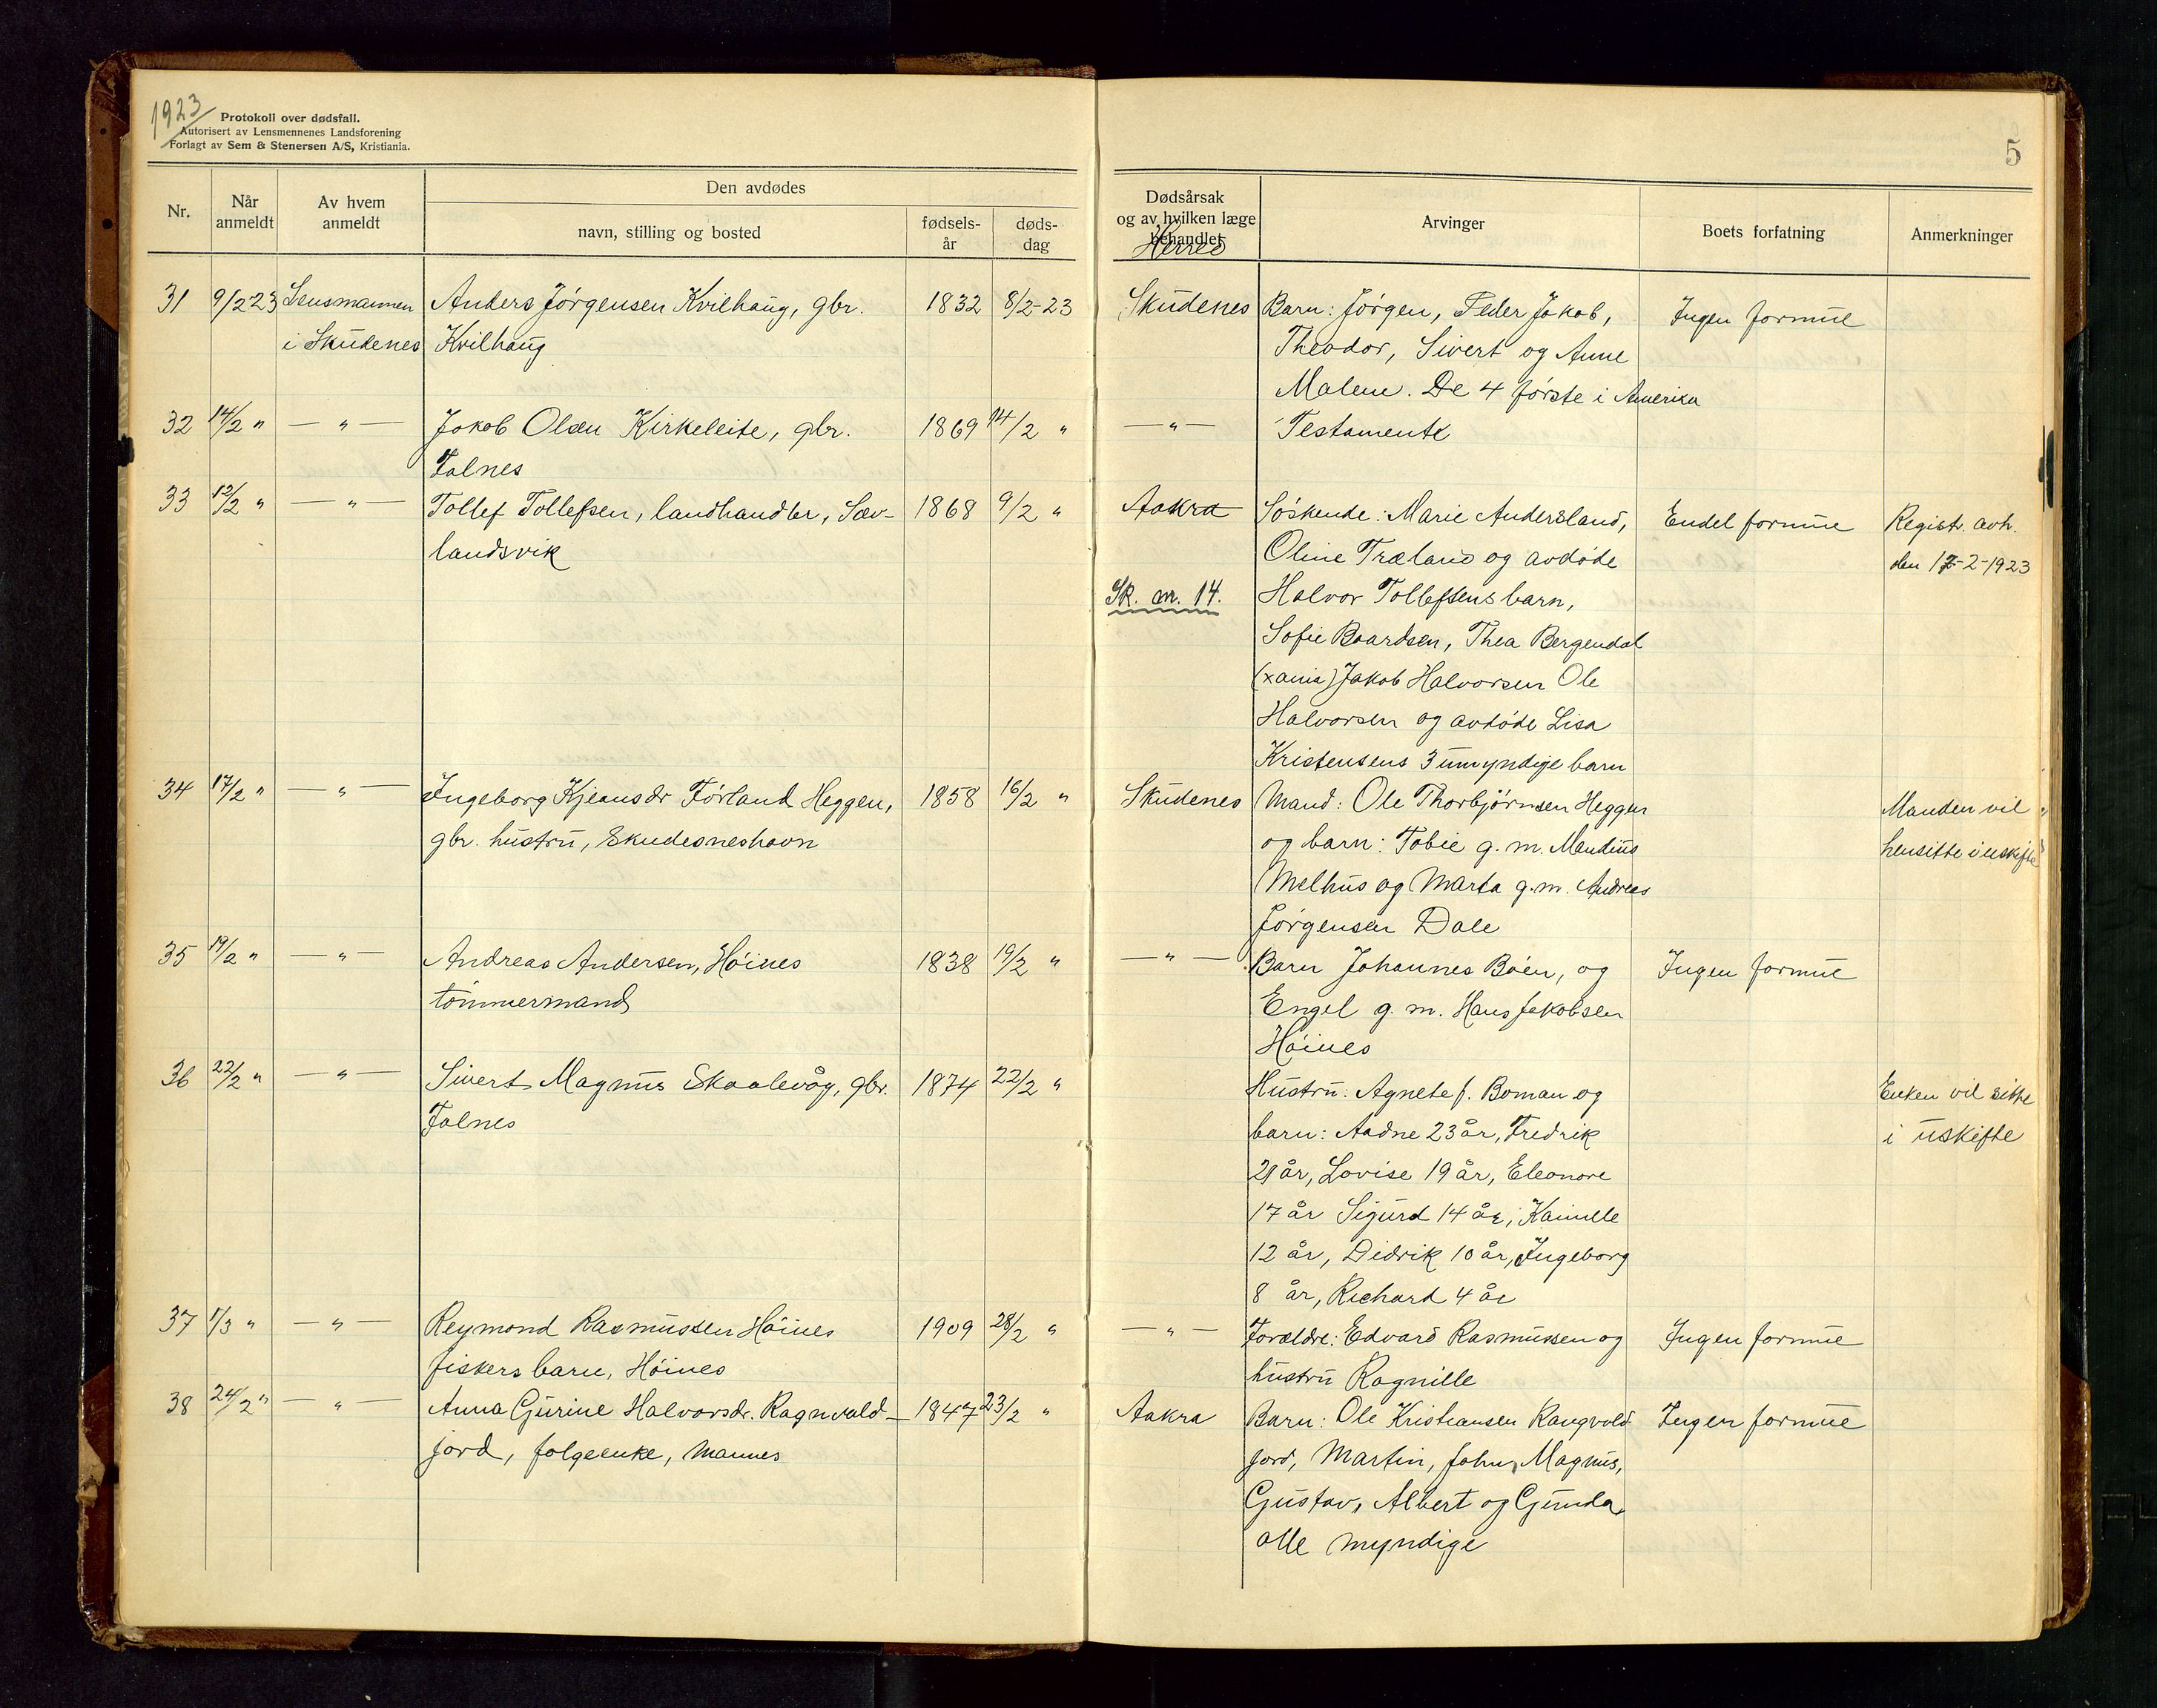 1923
Protokoll over dødsfall.
Autorisert av Lensmennenes Landsforening
Forlagt av Sem & Stenersen A/S, Kristiania.
5
Nr.
Når anmeldt
Av hvem anmeldt
Den avdødes
navn, stilling og bosted
fødsels-år
døds-dag
Dødsårsak
og av hvilken læge
behandlet
Herred
Arvinger
Boets forfatning
Anmerkninger
31 9/2 23 Lensmannen Anders Jørgensen Kvilhaug, gbr. 1832 8/2-23 Skudenes Barn: Jørgen, Peder Jakob, Ingen formue
i Skudenes Kvilhaug Theodor, Sivert og Anne
Malene. De 4 første i Amerika
32 14/2 " — " — Jakob Olsen Kirkeleite, gbr. 1869 14/2 " — " — Testamente
Falnes
33 12/2 " — " — Tollef Tollefsen, landhandler, Sæv- 1868 9/2 " Aakra Søskende: Marie Andersland, Endel formue Registr. avh.
landsvik Oline Træland og avdøde den 17-2-1923
Sk. m. 14. Halvor Tollefsens barn,
Sofie Baardsen, Thea Bergendal
(xania) Jakob Halvorsen Ole
Halvorsen og avdøde Lisa
Kristensens 3 umyndige barn
34 17/2 " — " — Ingeborg Kjeansdr Førland Heggen, 1858 16/2 " Skudenes Mand: Ole Thorbjørnsen Heggen Manden vil
gbr. hustru, Skudesneshavn og barn: Tobie g. m. Mandius hensitte i uskifte
Melhus og Marta g. m. Andreas
Jørgensen Dale
35 19/2 " — " — Andreas Andersen, Høines 1838 19/2 " — " — Barn Johannes Bøen, og Ingen formue
tømmermand Engel g. m. Hans Jakobsen
Høines
36 22/2 " — " — Sivert Magnus Skaalevåg, gbr. 1874 22/2 " Hustru: Agnete f. Boman og Enken vil sitte
Falnes barn: Aadne 23 år, Fredrik i uskifte
21 år, Lovise 19 år, Eleonore
17 år Sigurd 14 år, Kamille
12 år, Didrik 10 år, Ingeborg
8 år, Richard 4 år
37 1/3 " — " — Reymond Rasmussen Høines 1909 28/2 " — " — Forældre: Edvard Rasmussen og Ingen formue
fiskers barn, Høines hustru Ragnille
38 24/2 " — " Anna Gurine Halvorsdr. Ragnvald- 1847 23/2 " Aakra Barn: Ole Kristiansen Rangvold- Ingen formue
jord, folgeenke, Mannes jord, Martin, John, Magnus,
Gustav, Albert og Gunda
alle myndige